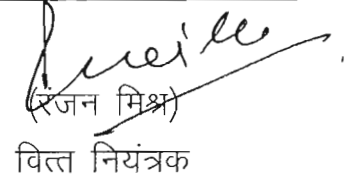 (रंजन मिश्र)
वित्त नियंत्रक